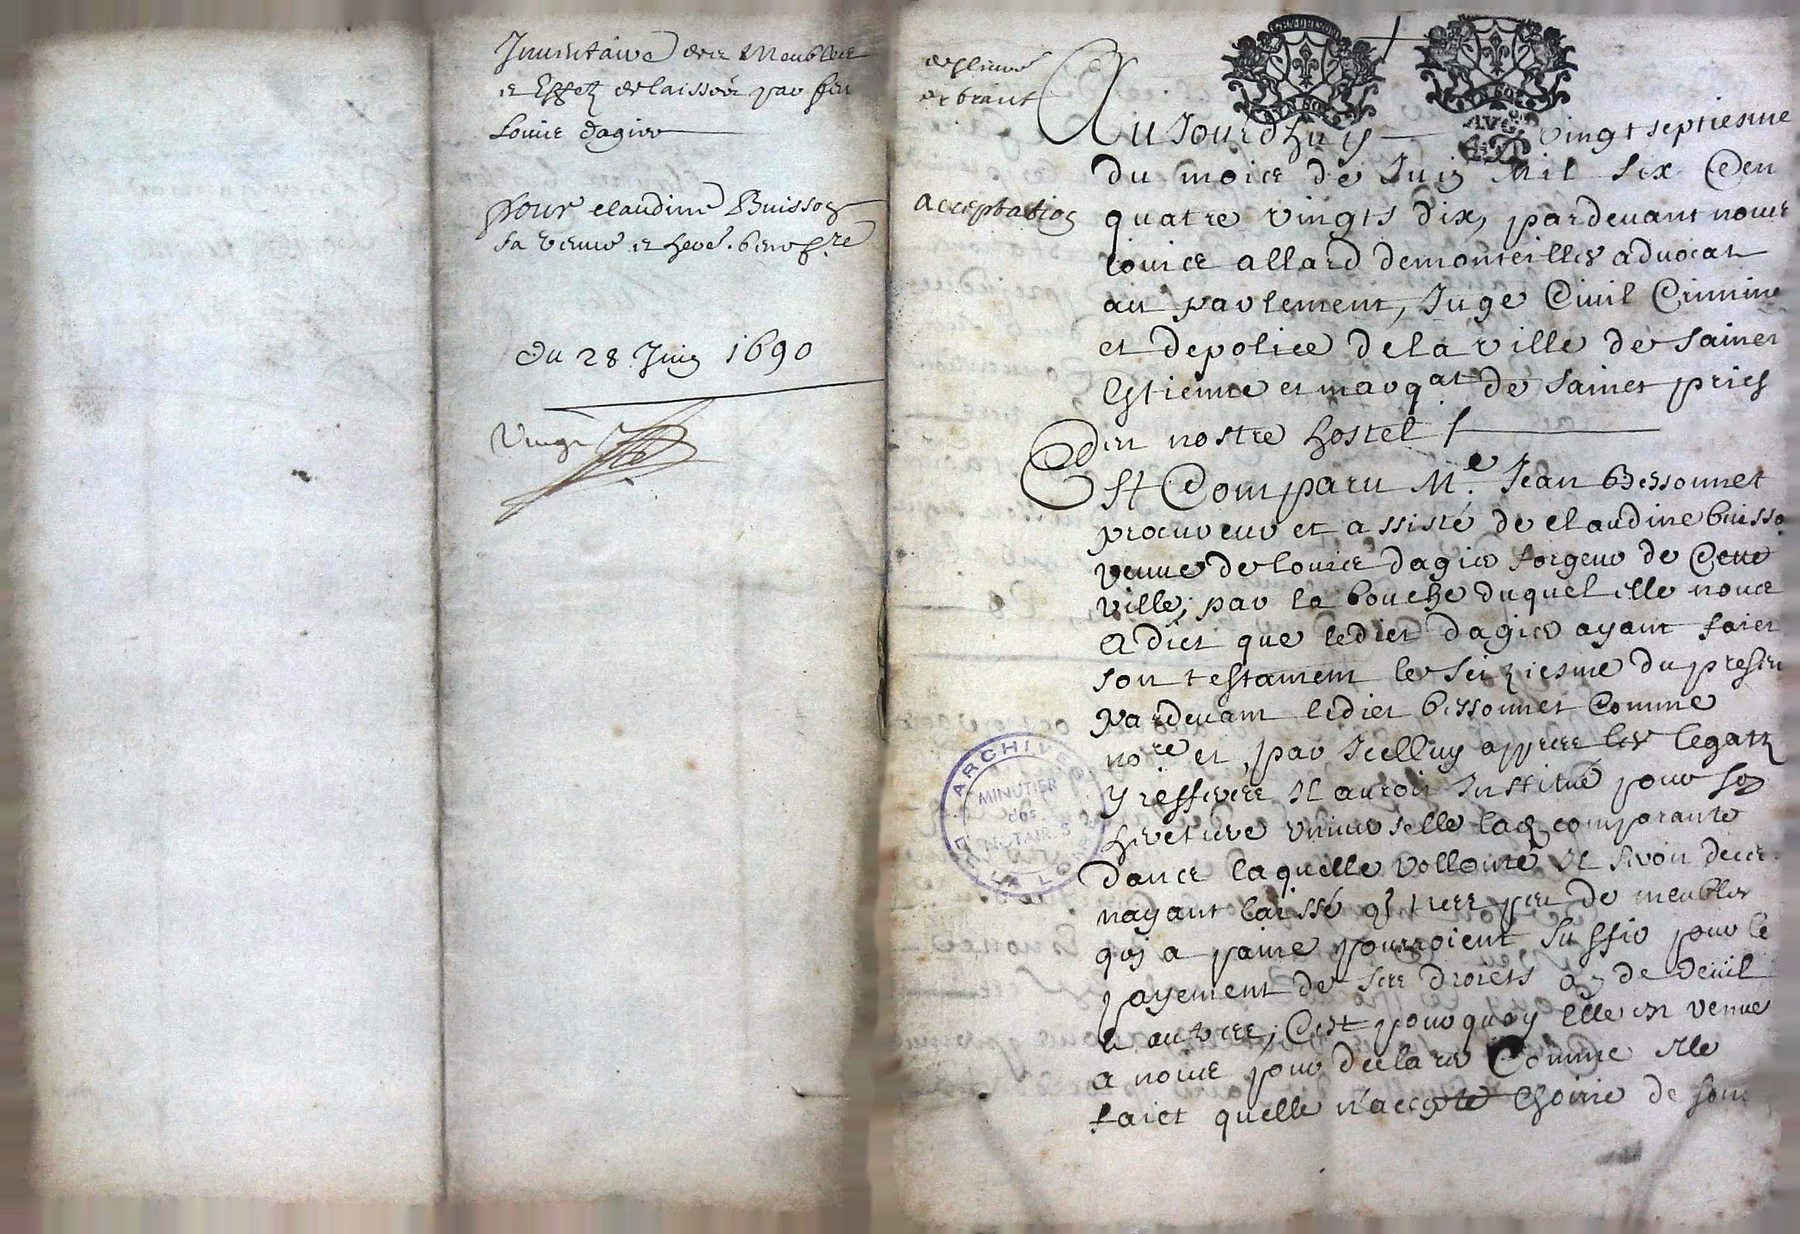 Inventaire des Meubles
et Effetz delaissés par feu
Louis dagier
pour claudine Buisson
sa veufve et herê. benefre
Du 28 Juin 1690
acceptation
Aujourdhuy vingt septiesme
du mois de Juin Mil six Cen
quatre vingts dix, pardevant nous
Louis allard demonteilles advocat
au parlement, Juge Civil Crimine
et depolice de la ville de sainct
Estienne et marqat de sainct priest
En nostre hostel
Est Comparu Me Jean Bessonnet
procureur et assisté de claudine buisso
veuve de louis dagier forgeur de Cette
ville, par la bouche duquel elle nous
A dict que ledict dagier ayant faict
son testament le seiziesme du presen
pardevant ledict bessonnet Comme
nore et, par Icelluy appres les legatz
y reservés Il auroit Institué pour so
heretiere universelle lad comparante
dans laquelle vollonté Il seroit decce
nayant laissé que tres peu de meubles
qui a paine pourroient suffir pour le
payement de ses droicts de deüil
et autres, Cest pourquoy Elle est venue
a nous pour declarer Comme elle
faict quelle n'accepte Lhoirie de son
ARCHIVES
MINUTIER
des
NOTAIRES
DE LA LOIRE